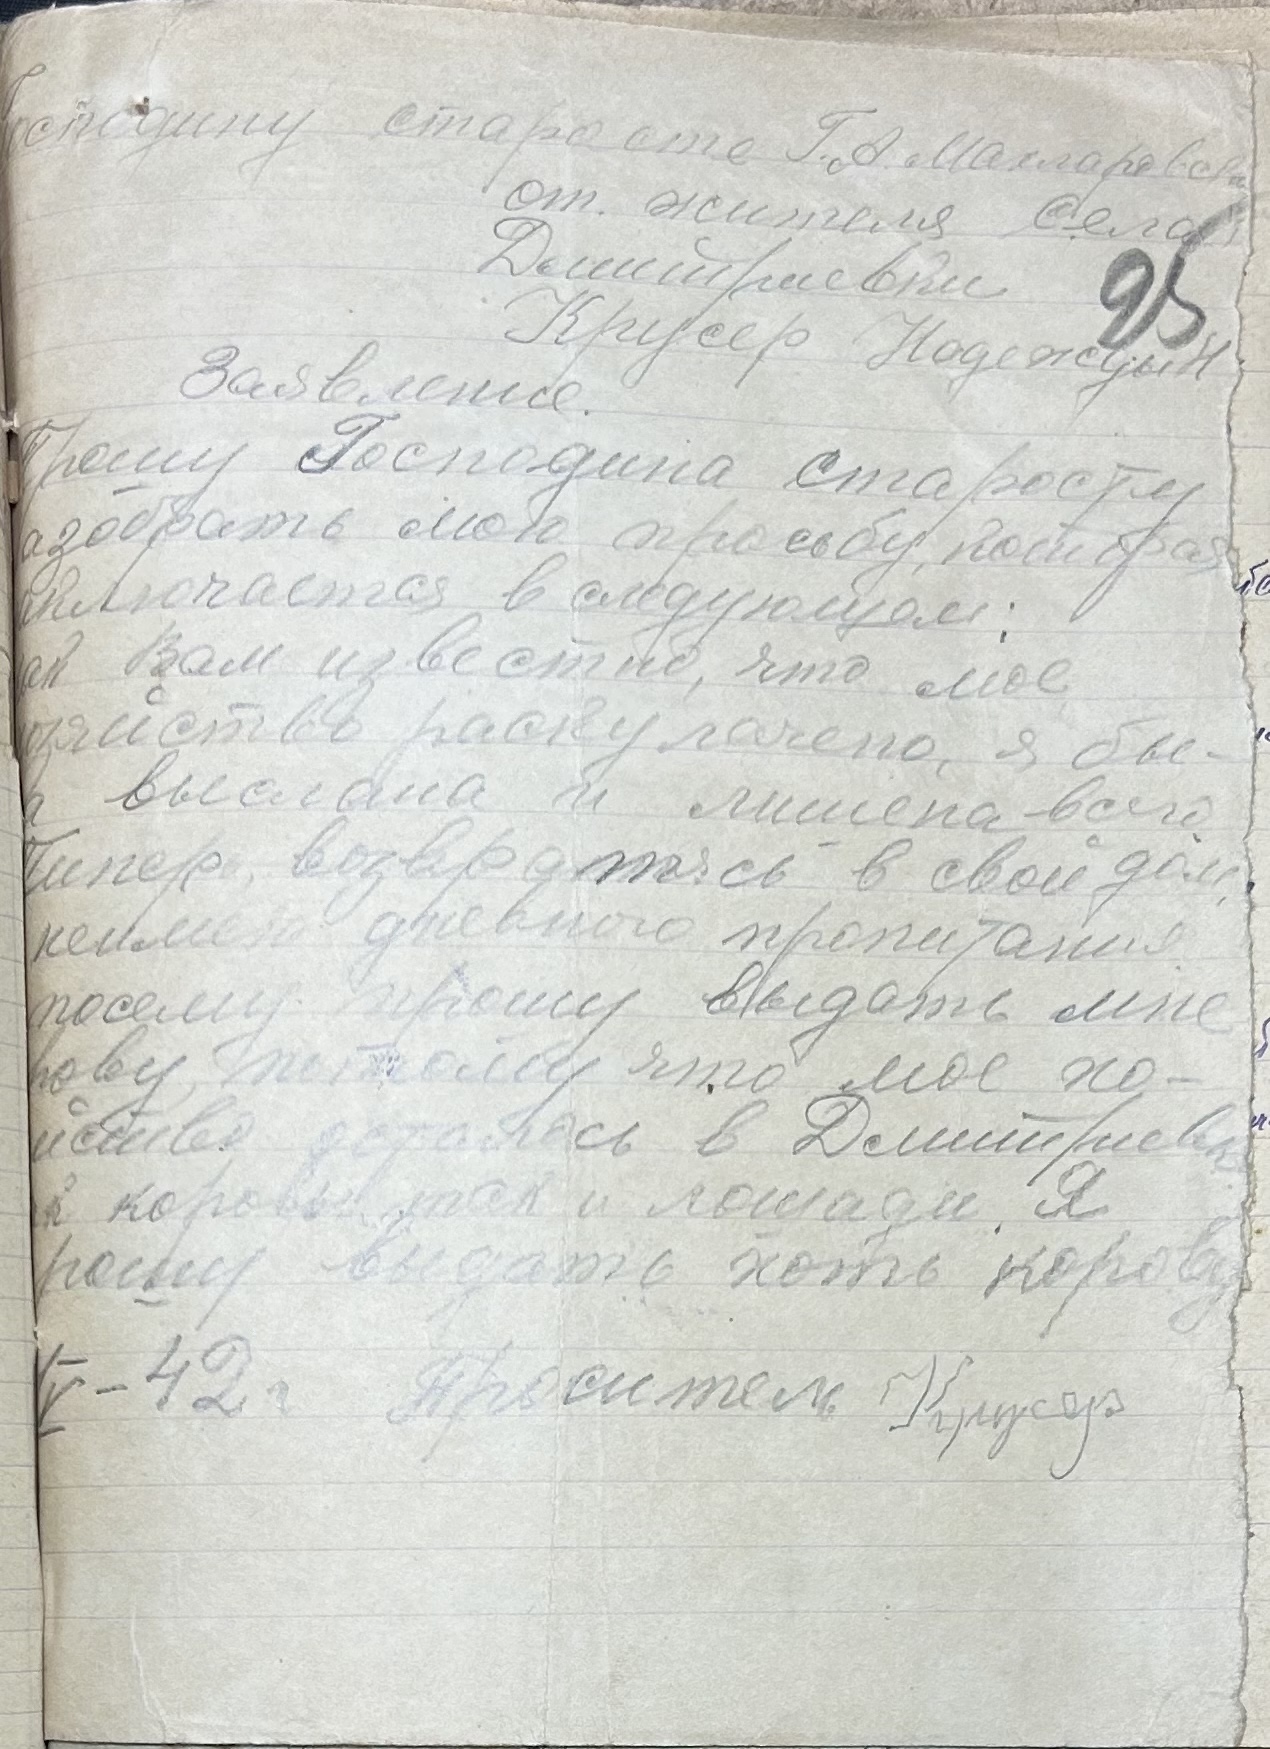 Господину старосте Г.А. Макларовск
от жителя села
Дмитриевки
95
Крусер Надежды Н.
Заявление.
Прошу Господина старосту
азобрать мою просьбу, которая
аключается в следующем:
ак Вам известно, что мое
озяйство раскулачено, я бы-
а выслана и лишена всего
Типерь, возвратясь в свой дом,
неимею дневного пропитания
посему прошу выдать мне
рову, потому что мое хо-
йство осталось в Дмитриевк
к коровы так и лошади. Я
рошу выдать хоть корову
IV-42 г Проситель Крусер